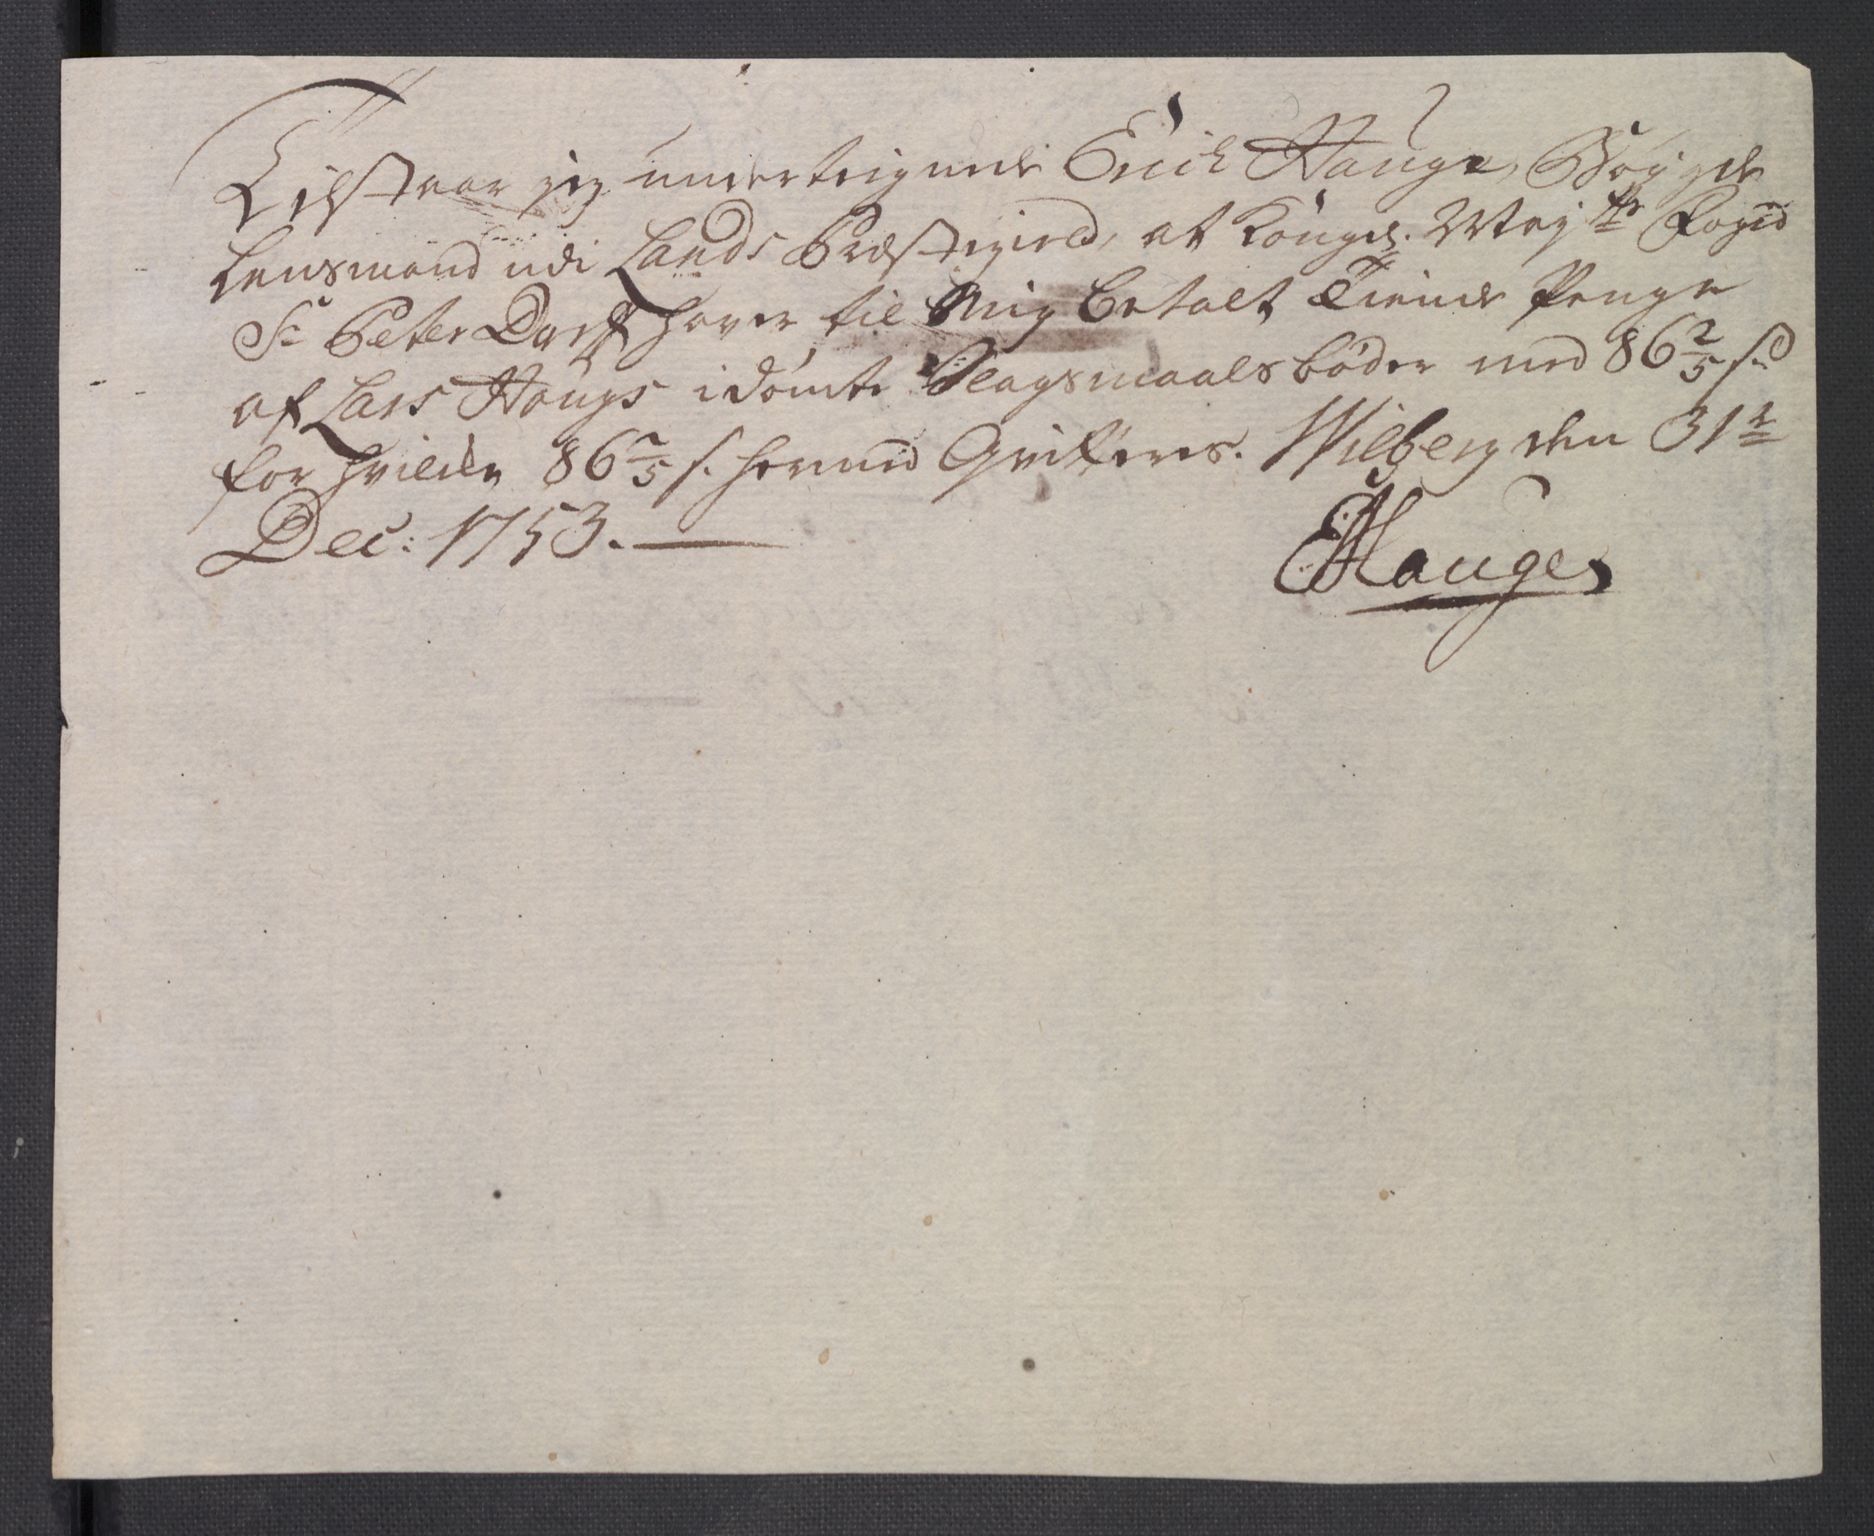 Tilstaar jeg underteignede Erich Hauge, Böygde
Lensmand udi Lands Præstegield, at Kongel. May:ts Foged
Sr Peter Dorff haver til Mig betalt Tiende Penge
af Lars Haugs idömte Slagsmaalsböder med 86 2/5 s.
for hvilcke 86 2/5 s. hermed Qvitteres. Wilberg den 31te
Dec: 1753.
EHauge